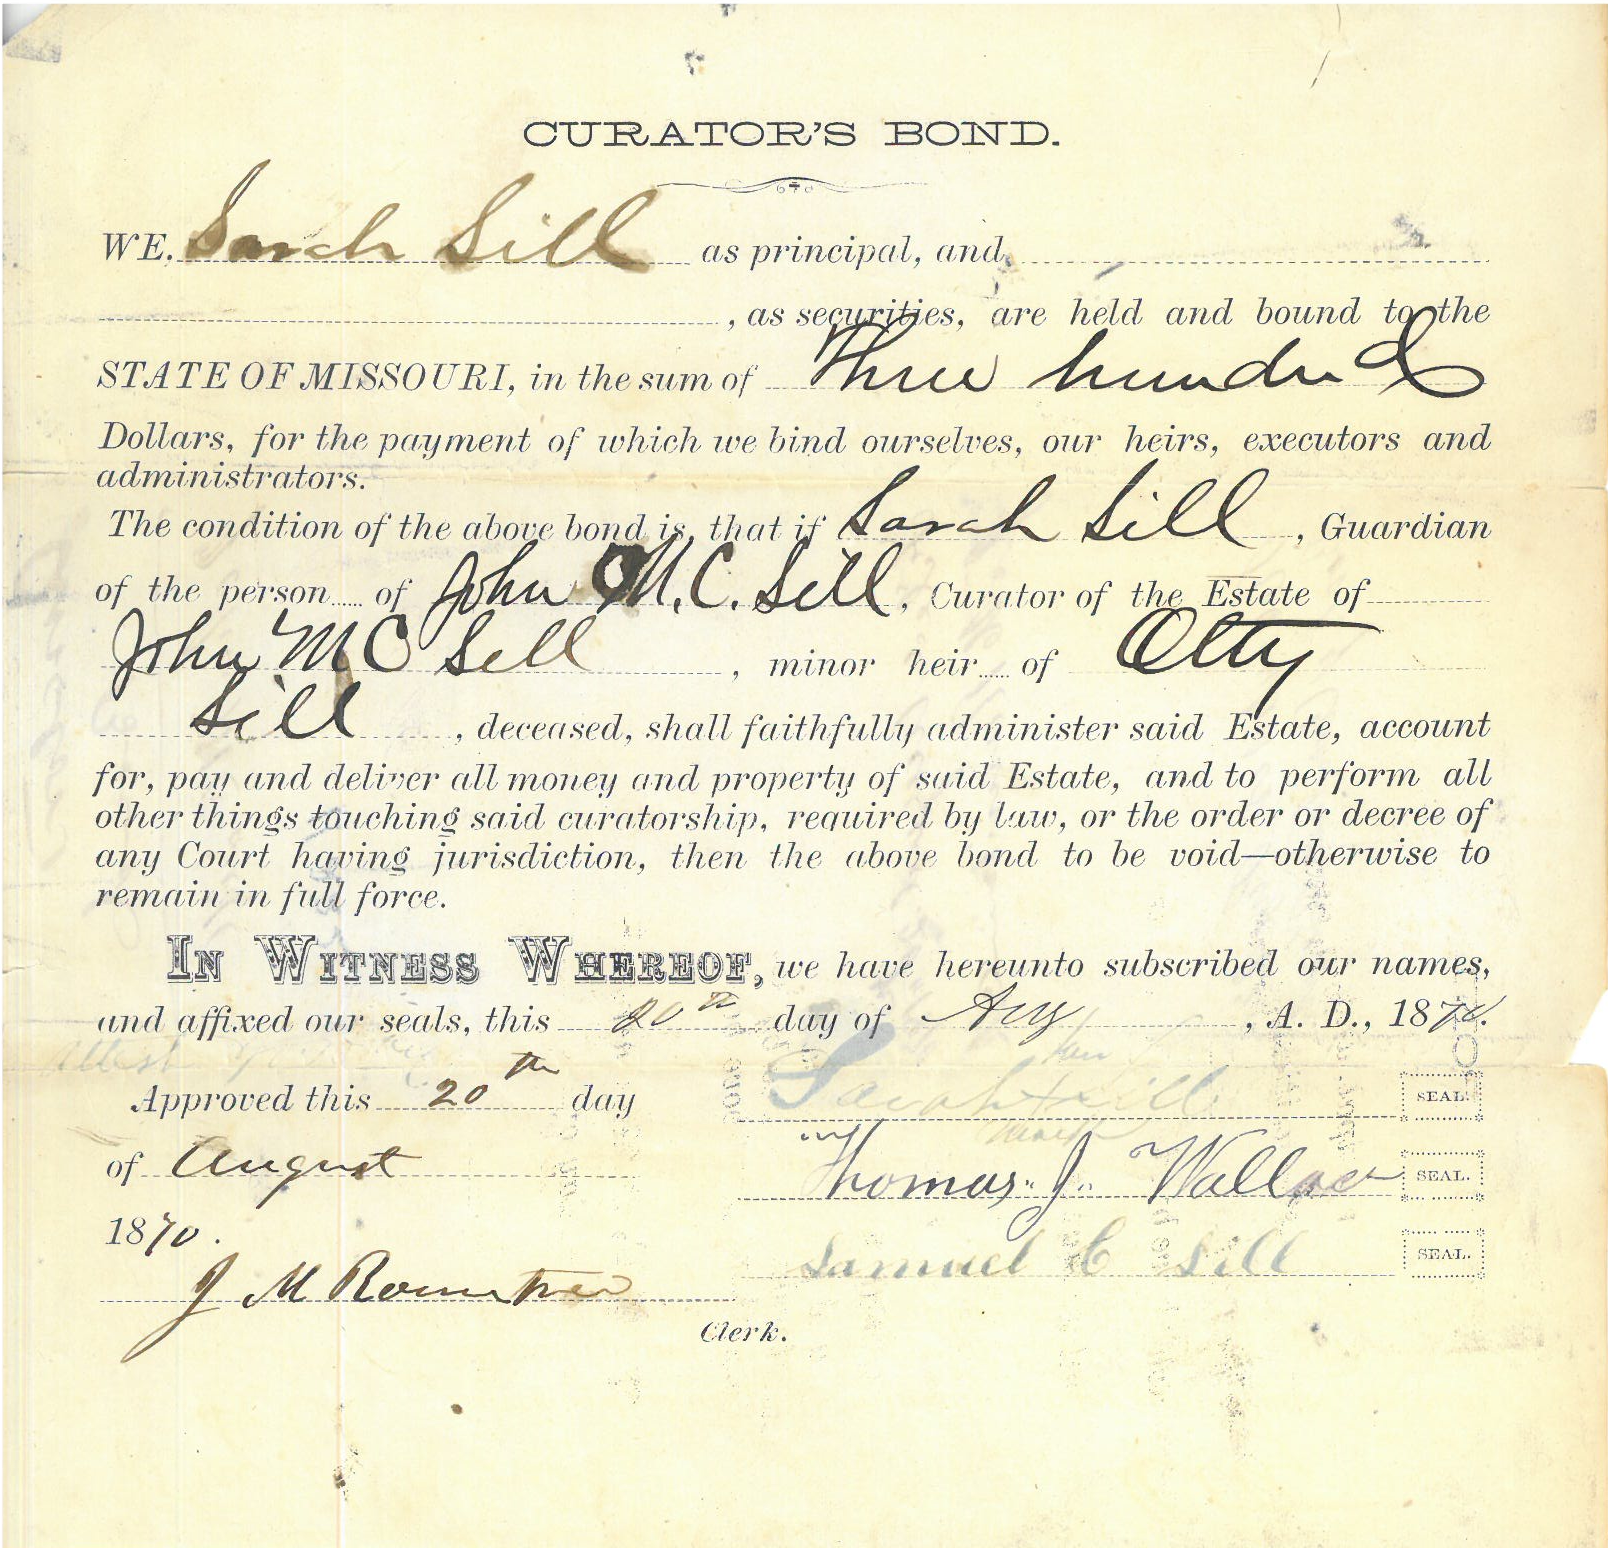 CURATOR'S BOND.
WE, Sarah Sill as principal, and
, as securities, are held and bound to the
STATE OF MISSOURI, in the sum of Three hundred
Dollars, for the payment of which we bind ourselves, our heirs, executors and
administrators.
The condition of the above bond is, that if Sarah Sill, Guardian
of the person of John M. C. Sill, Curator of the Estate of
John M C Sill, minor heir of Olty
Sill, deceased, shall faithfully administer said Estate, account
for, pay and deliver all money and property of said Estate, and to perform all
other things touching said curatorship, required by law, or the order or decree of
any Court having jurisdiction, then the above bond to be void—otherwise to
remain in full force.
IN WITNESS WHEREOF, we have hereunto subscribed our names,
and affixed our seals, this 20th day of Aug, A. D., 1870.
Attest
her
Approved this 20th day
Sarah x Sill SEAL.
mark
of August
Thomas J. Wallace SEAL.
1870.
Samuel C Sill SEAL.
J M Rountree
Clerk.